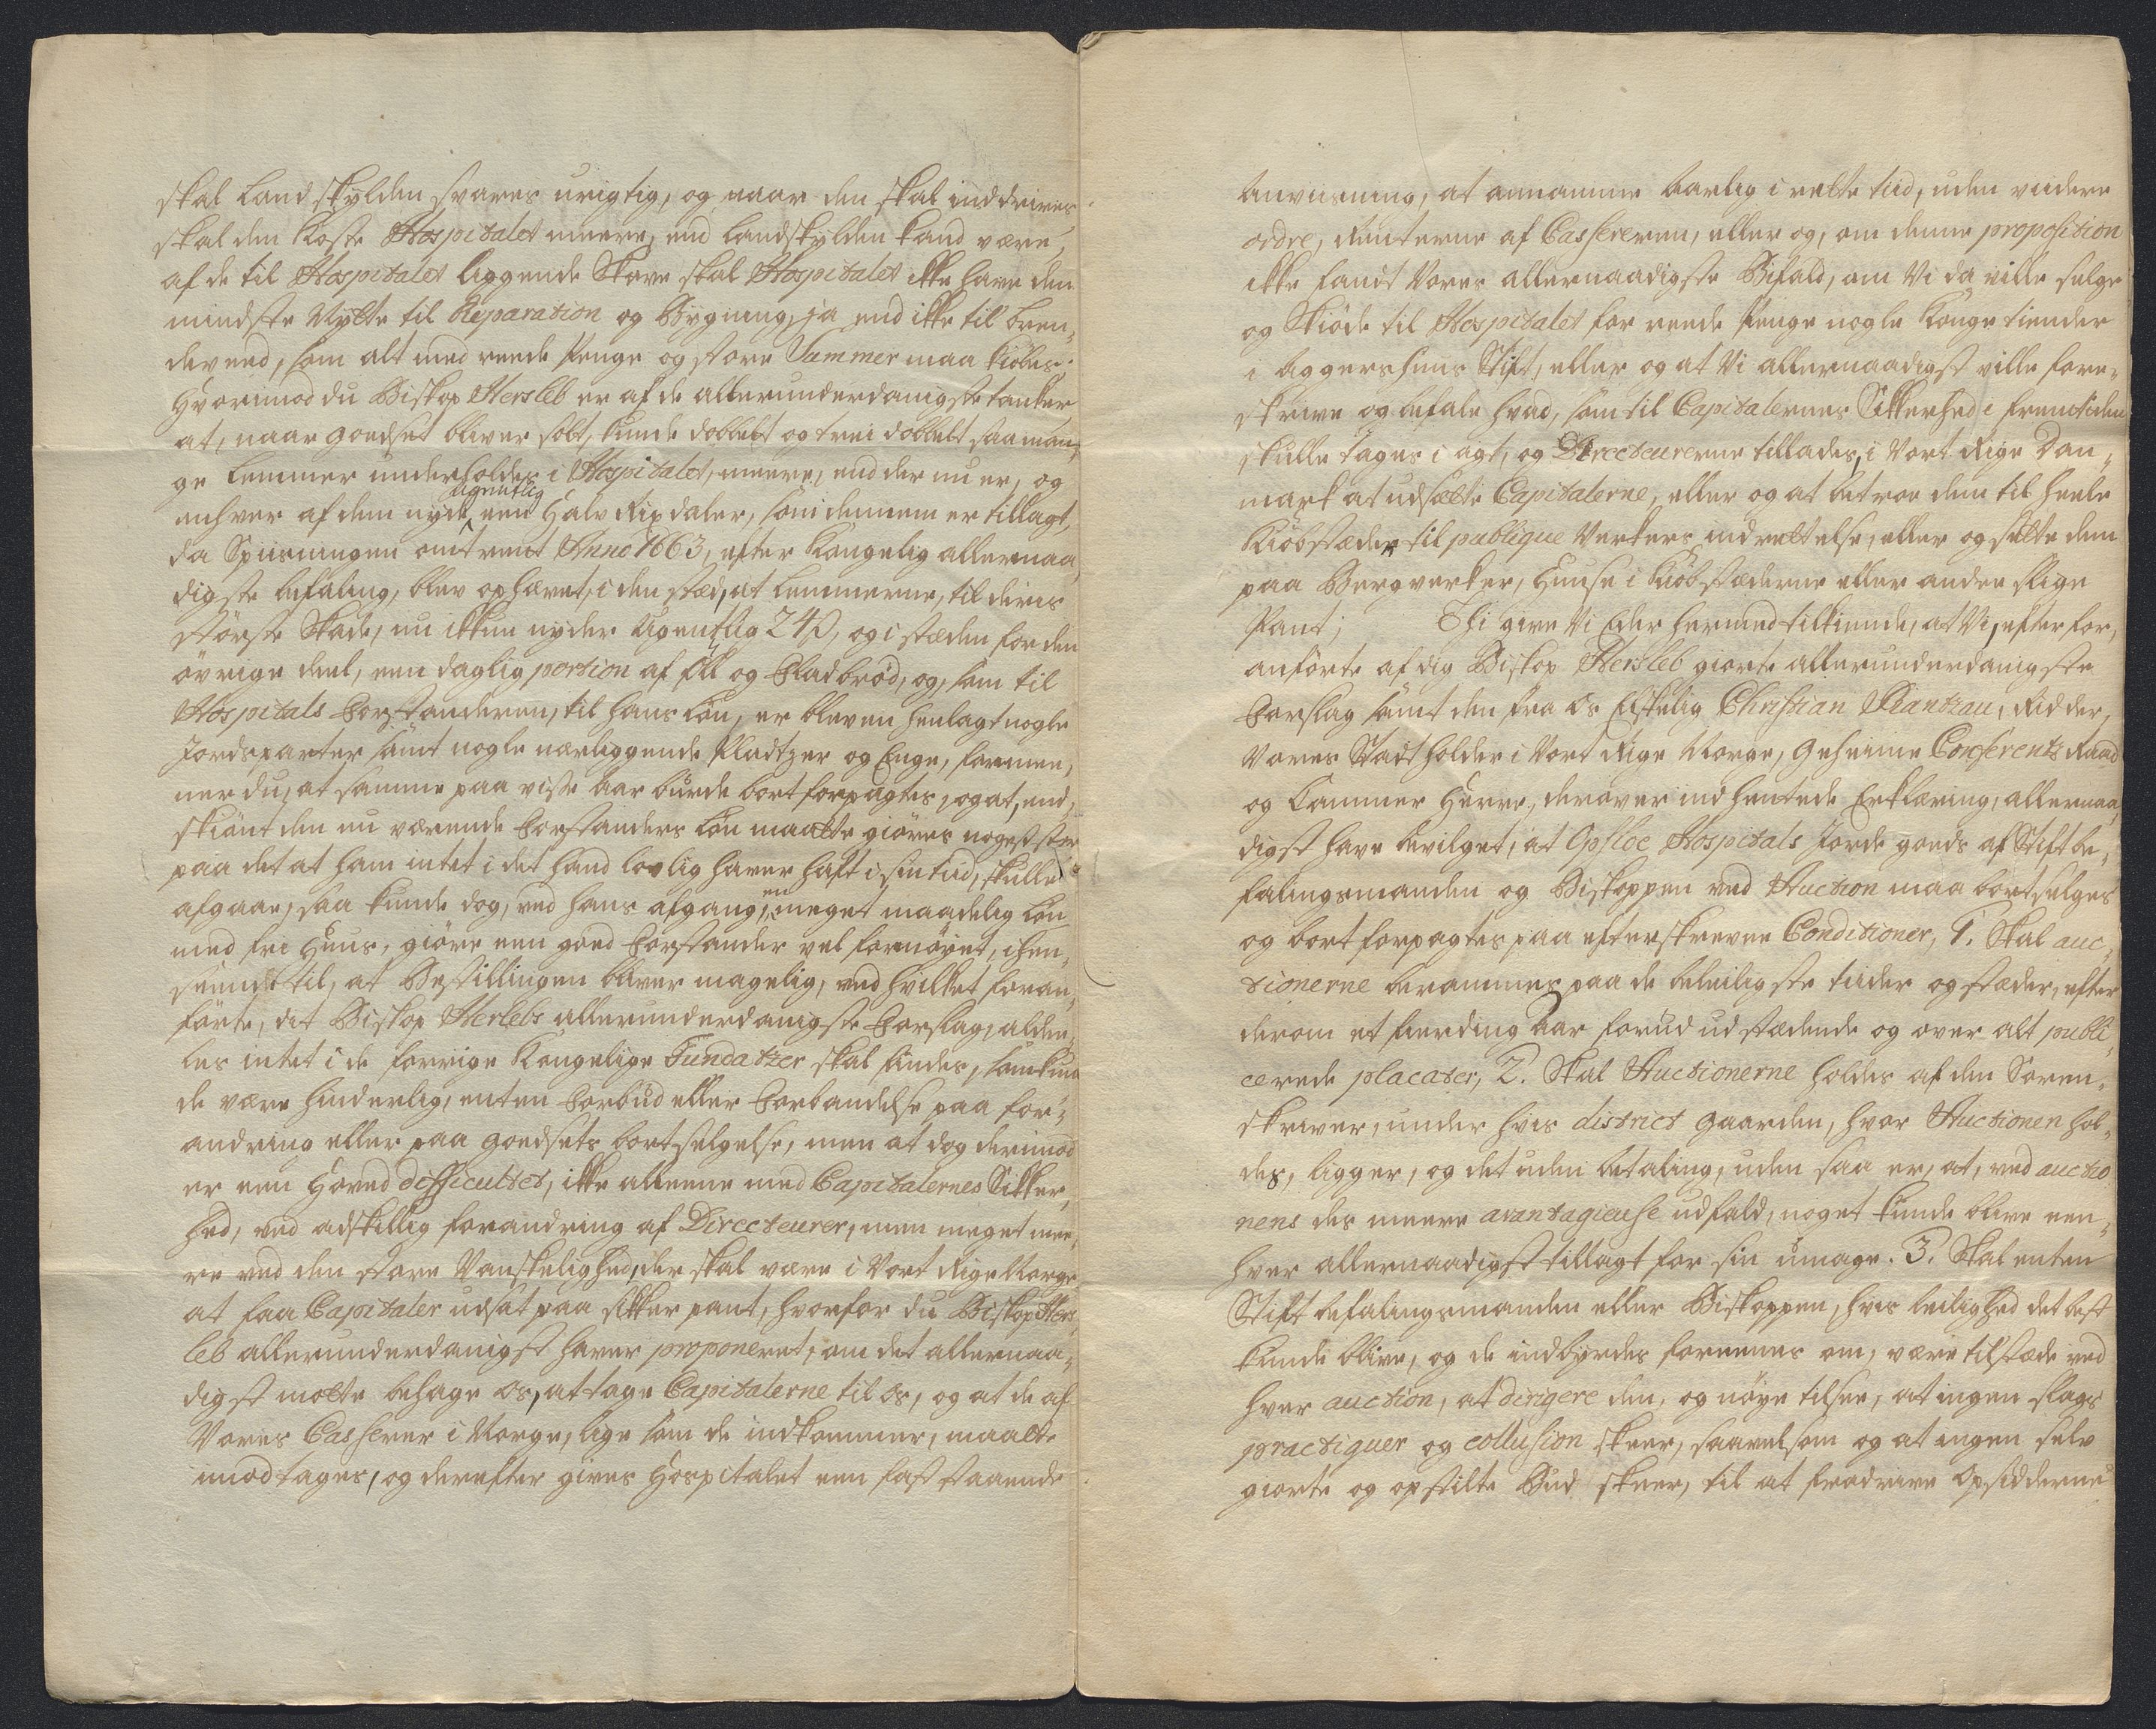 skal Landskylden svares urigtig, og naar den skal inddrives
skal den koste Hospitalet meere, end Landskylden kand være,
af de til Hospitalet liggende Skove skal Hospitalet ikke have den
mindste Nytte til Reparation og Bygning, ja end ikke til bren-
deveed, som alt med reede Penge og store Summer maa kiøbes.
Hvorimod du Biskop Hersleb er af de allerunderdanigste tanker
at, naar Goedset bliver solt, kunde dobbelt og trei dobbelt saa man-
ge Lemmer underholdes i Hospitalet, meere, end der nu er, og
enhver af dem nyde ugentlig een Halv Rixdaler, som dennem er tillagt,
da Spiisningen omtrent Anno 1663, efter Kongelig allernaa-
digste befaling, blev ophævet, i den stæd, at Lemmerne, til deris
störste Skade, nu ikkun nyder Ugentlig 24 ß, og i stæden for den
övrige deel, een daglig portion af Öll og Fladbröd, og, som til
Hospitals Forstanderen, til hans Lön, er bleven henlagt nogle
Jordeparter samt nogle nærliggende Pladtzer og Enge, formee-
ner du, at samme paa visse Aar burde bortforpagtes, og at, end-
skiönt den nu værende Forstanders Lön maatte giöres noget större
paa det at ham intet i det hand lovlig haver haft i sin tiid, skulle
afgaae, saa kunde dog, ved hans afgang, en meget maadelig Lön
med fri Huus, giöre een goed Forstander vel fornöyet, i hen-
seende til, at Bestillingen bliver magelig, ved hvilket foran-
förte, dit Biskop Herlebs allerunderdanigste Forslag, aldee-
les intet i de forrige Kongelige Fundatzer skal findes, som kun-
de være hinderlig, enten Forbud eller Forbandelse paa for-
andring eller paa Goedsets bortselgelse, men at dog derimod
er een Hoved difficultet, ikke alleene med Capitalernes Sikker-
hed, ved adskillig forandring af Directeurer, men meget mee-
re ved den store Vanskelighed, der skal være i Vort Rige Norge
at faa Capitaler udsat paa sikker pant, hvorfor du Biskop Hers-
leb allerunderdanigst haver proponeret, om det allernaa-
digst motte behage Os, at tage Capitalerne til Os, og at de af
Vores Casserer i Norge, lige som de indkommer, maatte
imodtages, og derefter gives Hospitalet een fast staaende
Anviisning, at annamme Aarlig i rette tiid, uden viidere
ordre, Renterne af Cassereren, eller og, om denne proposition
ikke fandt Vores allernaadigste Bifald, om Vi da ville selge
og Skiöde til Hospitalet for reede Penge nogle Konge tiender
i Aggershuus Stift, eller og at Vi allernaadigst ville fore-
skrive og befale hvad, som til Capitalernes Sikkerhed i fremtiden
skulle tages i agt, og Directeurerne tillades, i Vort Rige Dan-
mark at udsætte Capitalerne, eller og at betroe dem til heele
Kiöbstæder til publique Verkers indrettelse, eller og sette dem
paa Bergverker, Huuse i Kiöbstæderne eller andre slige
Pant; Thi give Vi Eder hermed tilkiende, at Vi, efter for-
anförte af dig Biskop Hersleb giorte allerunderdanigste
Forslag samt den fra Os Elskelig Christian Rantzau, Ridder,
Vores Stadtholder i Vort Rige Norge, Geheime Conferents Raad
og Cammer Herre, derover indhentede Erklæring, allernaa-
digst have bevilget, at Opsloe Hospitals Jorde goeds af Stiftbe-
falingsmanden og Biskoppen ved Auction maa bortselges
og bortforpagtes paa efterskrevne Conditioner, 1. Skal auc-
tionerne berammes paa de beleiligste tiider og stæder, efter
derom et fierding Aar forud udstædende og over alt publi-
cerede placater, 2. Skal Auctionerne holdes af den Soren-
skriver, under hvis district Gaarden, hvor Auctionen hol-
des, ligger, og det uden betaling, uden saa er, at, ved auctio-
nens des meere avantagieuse udfald, noget kunde blive een-
hver allernaadigst tillagt for sin umage. 3. Skal enten
Stiftbefalingsmanden eller Biskoppen, hvis leilighed det best
kunde blive, og de indbyrdes foreenes om, være tilstæde ved
hver auction, at dirigere den, og nöye tilsee, at ingen slags
practiquer og collusion skeer, saavelsom og at ingen selv
giorte og opstilte Bud skeer, til at fradrive Opsidderne